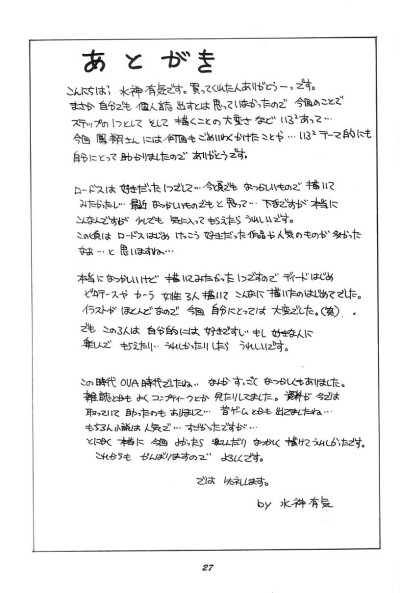 あとがき
こんにちは、水神有気です。買ってくれた人ありがとうーっです。
まさか自分でも個人誌出すとは思っていなかったので今回のことで
ステップの1つとしてそして描くことの大変さなどいろいろあって…
今回 さんには何回もごめいわくかけたことや…いろいろテーマ的にも
自分にとって助かりましたのでありがとうです。
ロードスは好きだった1つでして…今頃でもなつかしいもので描いて
みたかったし…最近なつかしいものでもと思って…下手ですが本当に
こんなんですがそれでも気に入ってもらえたらうれしいです。
この頃はロードスはじめけっこう好きだった作品や人気のものが多かった
なぁ…と思いますね…
本当になつかしいけど描いてみたかった1つですのでディードはじめ
ピロテースやカーラ女性3人描いてこんなに描いたのはじめてでした。
イラストがほとんどなので今回自分にとっては大変でした。(笑)..
でもこの3人は自分的には好きですしもし好きな人に
楽しんでもらえたり…うれしかったりしたらうれしいです。
この時代OVA時代でしたね…なんかすっごくなつかしくもありました。
雑誌とかもよくコンプティークとか見たりしてました。資料が今では
取っていて助かったのもありまして…昔ゲームとかも出てましたね…
もちろん小説は人気で…すごかったですが…
とにかく本当に今回よかったら楽しんだりなつかしく描けてうれしかったです。
これからもがんばりますのでよろしくです。
では 失礼します。
by 水神有気
27